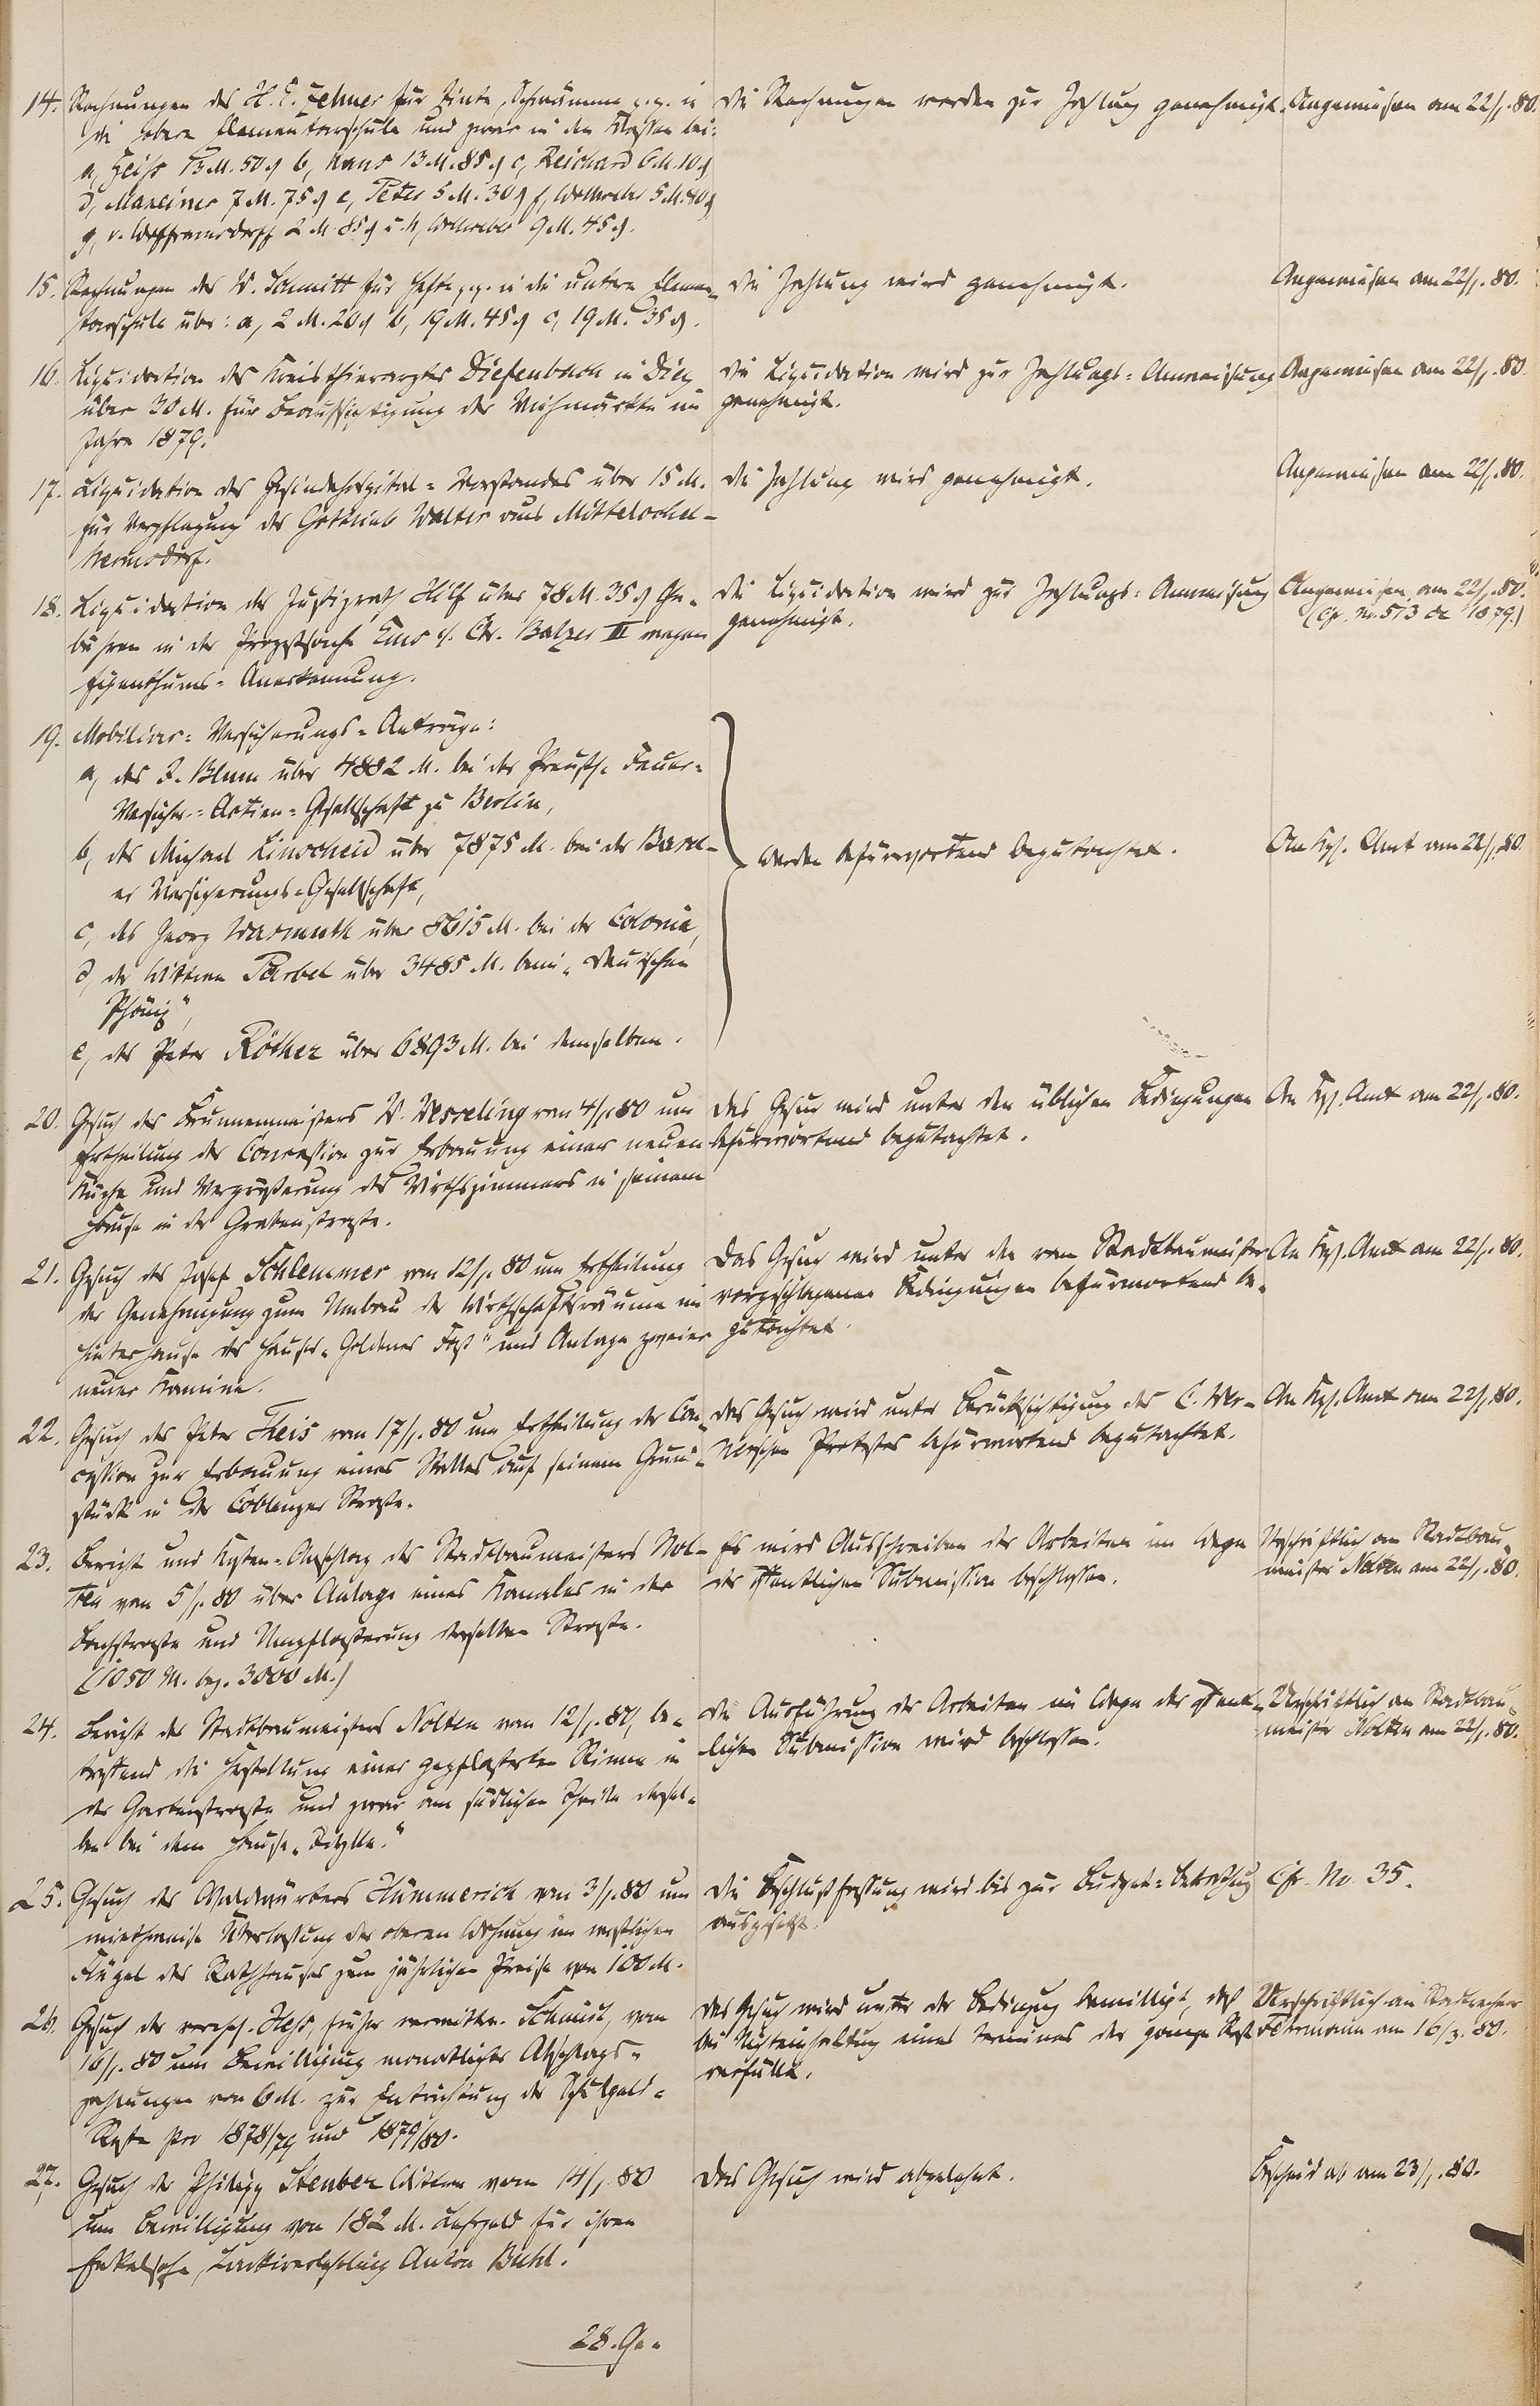 14. Rechnungen des H. E. Zehner für Tinte, Schwämme p.p. in
die obere Elementarschule und zwar in den Klassen bei:
a, Heiß 13 M. 50 ₰ b, Kans 13 M. 85 ₰ c, Reichard 6 M. 10 ₰
d, Mareiner 7 M. 75 ₰ e, Peter 5 M. 30 ₰ f, Wollweber 5 M. 40 ₰
g, v. 2 M. 85 ₰ u. h, Wollweber 9 M. 45 ₰.
Die Rechnungen werden zur Zahlung genehmigt.
Angewiesen am 22/1. 80.
15. Rechnungen des W. Schmitt für Hefte p.p. in die untere Elemen-
tarschule über: a, 2 M. 20 ₰ b, 19 M. 45 ₰ c, 19 M. 35 ₰.
Die Zahlung wird genehmigt.
Angewiesen am 22/1. 80.
16. Liquidation des Kreisthierarztes Diefenbach in Diez
über 30 M. für Beaufsichtigung der Viehmärkte im
Jahre 1879.
Die Liquidation wird zur Zahlungs-Anweisung
genehmigt.
Angewiesen am 22/1. 80.
17. Liquidation des Gesindehospital-Vorstandes über 15 M.
für Verpflegung des Gottlieb Walter aus Mittelochel-
hermsdorf.
Die Zahlung wird genehmigt.
Angewiesen am 22/1. 80.
18. Liquidation des Justizrath Hilf über 78 M. 35 ₰ Ge-
bühren in der Prozeßsache Ems c/. Chr. Balzer III wegen
Eigenthums-Anerkennung.
Die Liquidation wird zur Zahlungs-Anweisung
genehmigt.
Angewiesen am 22/1. 80.
(cfr. No. 513 de 1879.)
19. Mobiliar-Versicherungs-Anträge:
a, des J. Blum über 4882 M. bei der Preuß. Feuer-
Versicher.-Actien-Gesellschaft zu Berlin,
b, des Michael Linscheid über 7875 M. bei der Basel-
er Versicherungs-Gesellschaft,
c, des Georg Warmuth über 8615 M. bei der Colonia,
d, der Wittwe Parbel über 3485 M. beim "Deutschen
Phönix",
e, des Peter Röther über 6893 M. bei demselben.
Werden befürwortend begutachtet.
An Kgl. Amt am 22/1. 80.
20. Gesuch des Brunnenmeisters W. Wesseling vom 4/1 80 um
Ertheilung der Concession zur Erbauung einer neuen
Küche und Vergrößerung des Wirthszimmers in seinem
Hause in der Grabenstraße.
Das Gesuch wird unter den üblichen Bedingungen
befürwortend begutachtet.
An Kgl. Amt am 22/1. 80.
21. Gesuch des Josef Schlemmer vom 12/1. 80 um Ertheilung
der Genehmigung zum Umbau der Wirthschaftsräume im
Hinterhause des Hauses "Goldenes Faß" und Anlage zweier
neuer Kamine.
Das Gesuch wird unter den vom Stadtbaumeister
vorgeschlagenen Bedingungen befürwortend be-
gutachtet.
An Kgl. Amt am 22/1. 80.
22. Gesuch des Peter Theis vom 17/1. 80 um Ertheilung der Con-
cession zur Erbauung eines Stalles auf seinem Grund-
stück in der Coblenzer Straße.
Das Gesuch wird unter Berücksichtigung des C.
Protestes befürwortend begutachtet.
An Kgl. Amt am 22/1. 80.
23. Bericht und Kosten-Anschlag des Stadtbaumeisters Nol-
ten vom 5/1. 80 über Anlage eines Kanales in der
Bachstraße und Umpflasterung derselben Straße.
(1050 M. bez. 3000 M.)
Es wird Ausschreiben der Arbeiten im Wege
der öffentlichen Submission beschlossen.
Urschriftlich an Stadtbau-
meister Nolten am 22/1. 80.
24. Bericht des Stadtbaumeisters Nolten vom 12/1. 80, be-
treffend die Herstellung einer gepflasterten Rinne in
der Gartenstraße und zwar am südlichen Theile dersel-
ben bei dem Hause "Idylle."
Die Ausführung der Arbeiten im Wege der öffent-
lichen Submission wird beschlossen.
Urschriftlich an Stadtbau-
meister Nolten am 22/1. 80.
25. Gesuch des Waldwärters Hümmerich vom 3/1. 80 um
miethweise Überlassung der oberen Wohnung im westlichen
Flügel des Rathhauses zum jährlichen Preise von 100 M.
Die Beschlußfassung wird bis zur Budget-Berathung
ausgesetzt.
Cfr. No. 35.
26. Gesuch der verehel. Heß, früher verwittw. Schmidt, vom
16/1. 80 um Bewilligung monatlicher Abschlags-
zahlungen von 6 M. zur Entrichtung der Schulgeld-
Reste pro 1878/79 und 1879/80.
Das Gesuch wird unter der Bedingung bewilligt, daß
bei Nichteinhaltung eines Termines der ganze Rest
verfällt.
Urschriftlich an Stadtrechner
Fehrmann am 16/3. 80.
27. Gesuch der Philipp Steuber Wittwe vom 14/1. 80
um Bewilligung von 182 M. Lehrgeld für ihren
Enkelsohn, Lackirerlehrling Anton Buhl.
Das Gesuch wird abgelehnt.
Bescheid ab am 23/1. 80.
28. Ge-